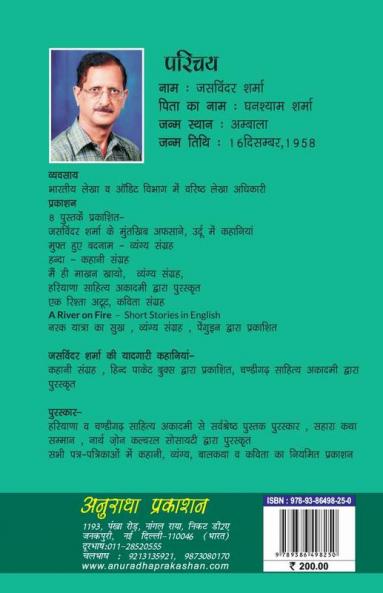 परिचय
नाम : जसविंदर शर्मा
पिता का नाम : घनश्याम शर्मा
जन्म स्थान : अम्बाला
जन्म तिथि : 16दिसम्बर,1958
व्यवसाय
भारतीय लेखा व ऑडिट विभाग में वरिष्ठ लेखा अधिकारी
प्रकाशन
8 पुस्तकें प्रकाशित-
जसविंदर शर्मा के मुंतखिब अफसाने, उर्दू में कहानियां
मुफ्त हुए बदनाम - व्यंग्य संग्रह
हन्दा - कहानी संग्रह
मैं ही माखन खायो, व्यंग्य संग्रह,
हरियाणा साहित्य अकादमी द्वारा पुरस्कृत
एक रिश्ता अटूट, कविता संग्रह
A River on Fire - Short Stories in English
नरक यात्रा का सुख , व्यंग्य संग्रह , पेंगुइन द्वारा प्रकाशित
जसविंदर शर्मा की यादगारी कहानियां-
कहानी संग्रह , हिन्द पाकेट बुक्स द्वारा प्रकाशित, चण्डीगढ़ साहित्य अकादमी द्वारा
पुरस्कृत
पुरस्कार-
हरियाणा व चण्डीगढ़ साहित्य अकादमी से सर्वश्रेष्ठ पुस्तक पुरस्कार , सहारा कथा
सम्मान , नार्थ ज़ोन कल्चरल सोसायटी द्वारा पुरस्कृत
सभी पत्र-पत्रिकाओं में कहानी, व्यंग्य, बालकथा व कविता का नियमित प्रकाशन
अनुराधा प्रकाशन
1193, पंखा रोड़, नांगल राया, निकट डी2ए
जनकपुरी, नई दिल्ली-110046 (भारत)
दूरभाष:011-28520555
चलभाष : 9213135921, 9873080170
www.anuradhaprakashan.com
ISBN : 978-93-86498-25-0
9789386498250
₹ 200.00